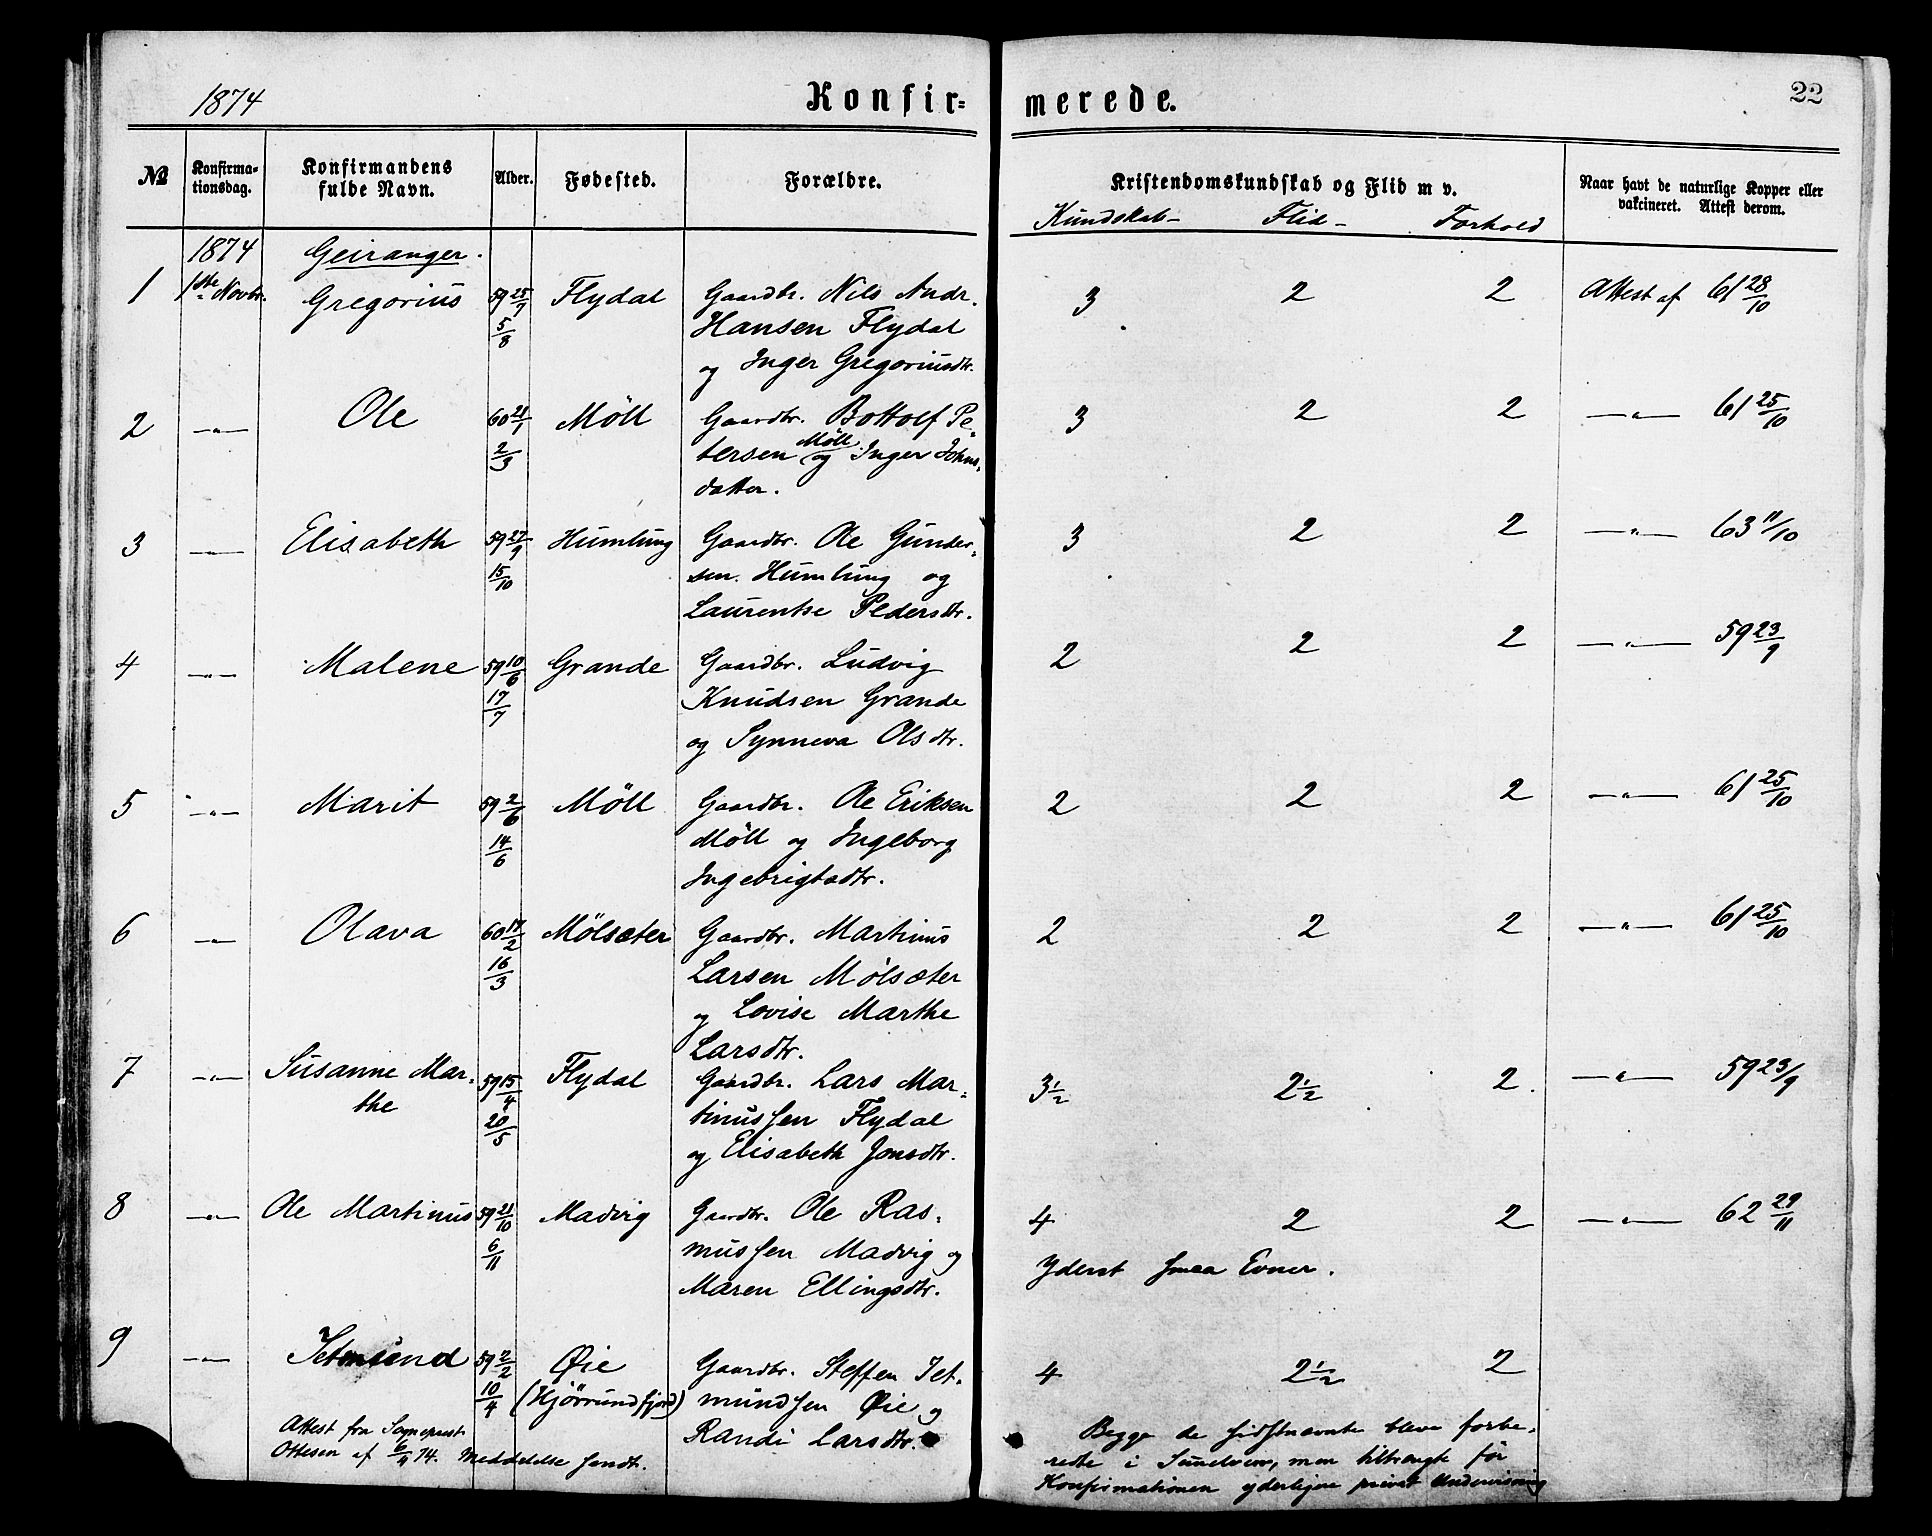 1874 Konfir= merede. 22
№ Konfirma- tionsdag. Konfirmandens fulde Navn. Alder. Fødested. Forældre. Kristendomskundskab og Flid m v. Naar havt de naturlige Kopper eller vakcineret. Attest derom.
Kundskab- Flid- Forhold
1874 Geiranger.
1 1ste Novbr. Gregorius 59 25/7 Flydal Gaardbr. Nils Andr. 3 2 2 Attest af 61 28/10
5/8 Hansen Flydal
og Inger Gregoriusdtr.
2 —"— Ole 60 21/1 Möll Gaardbr. Bottolf Pe- 3 2 2 —"— 61 25/10
2/3 tersen Möll og Inger Johns-
datter.
3 —"— Elisabeth 59 27/9 Humlung Gaardbr. Ole Gunder- 3 2 2 —"— 63 11/10
15/10 sen. Humlung og
Laurentse Pedersdtr.
4 —"— Malene 59 10/6 Grande Gaardbr. Ludvig 2 2 2 —"— 59 23/9
17/7 Knudsen Grande
og Synneva Olsdtr.
5 —"— Marit 59 2/6 Möll Gaardbr. Ole Eriksen 2 2 2 —"— 61 25/10
14/6 Möll og Ingeborg
Ingebrigtsdtr.
6 —"— Olava 60 17/2 Mölsæter Gaardbr. Martinus 2 2 2 —"— 61 25/10
16/3 Larsen Mölsæter
og Lovise Marthe
Larsdtr.
7 —"— Susanne Mar- 59 15/4 Flydal Gaardbr. Lars Mar- 3½ 2½ 2 —"— 59 23/9
the 20/5 tinussen Flydal
og Elisabeth Jonsdtr.
8 —"— Ole Martinus 59 21/10 Madvig Gaardbr. Ole Ras- 4 2 2 —"— 62 29/11
6/11 mussen Madvig og Yderst smaa Evner.
Maren Ellingsdtr.
9 —"— Jetmund 59 2/2 Øie Gaardbr. Steffen Jet- 4 2½ 2
10/4 (Hjörrundfjord) mundsen Øie og
Randi Larsdtr.
Attest fra Sognepræst
Ottesen af 6/4 74. Meddelelse sendt.
Begge de sidstnævnte bleve forbe-
redte i Sunelven, men tiltrængte før
Konfirmationen yderligere privat Undervisning